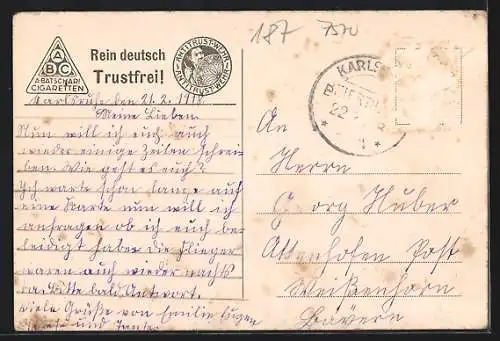 187 7570
A
B C
A. BATSCHARI
CIGARETTEN
Rein deutsch
Trustfrei!
ANTITRUST-WEHR
ANTITRUST-WEHR
KARLS
22
1
Karlsruhe den 21.2.1918
Meine Lieben.
Nun will ich euch auch
wieder einige Zeilen schrei-
ben. Wie geht es euch?
Ich warte schon lange auf
eine Karte nun will ich
anfragen ob ich euch be-
leidigt habe. Die Flieger
waren auch wieder nachts
da. Bitte bald Antwort.
Viele Grüße von Emilie Eugen
und Tante
An
Herrn
Georg Huber
Attenhofen Post
Weißenhorn
Bayern